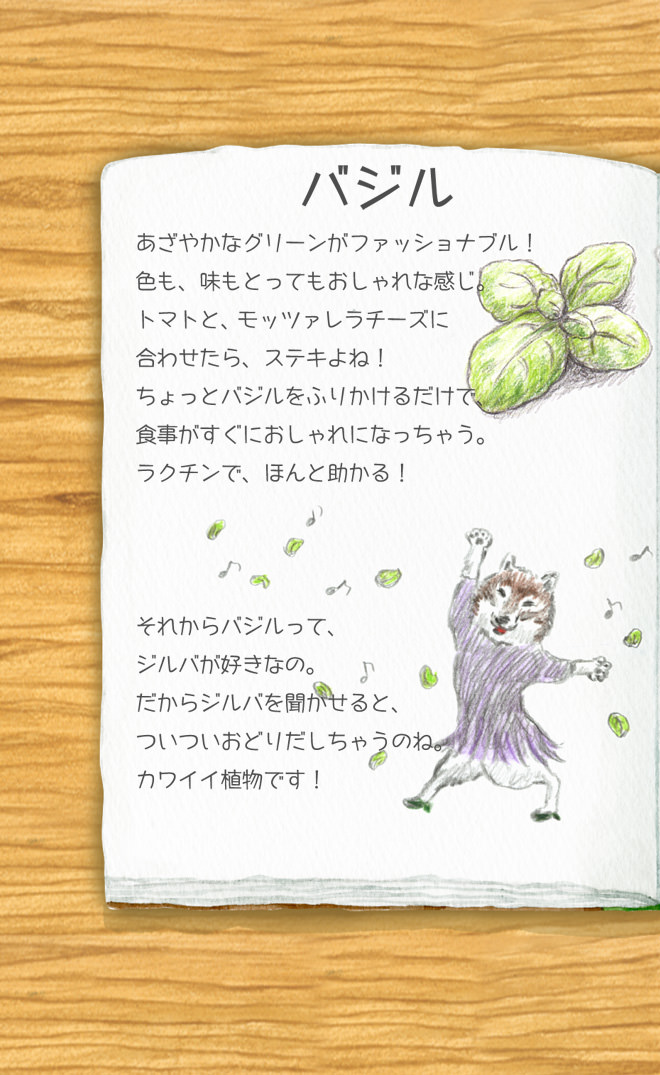 バジル
あざやかなグリーンがファッショナブル！
色も、味もとってもおしゃれな感じ。
トマトと、モッツァレラチーズに
合わせたら、ステキよね！
ちょっとバジルをふりかけるだけで、
食事がすぐにおしゃれになっちゃう。
ラクチンで、ほんと助かる！
それからバジルって、
ジルバが好きなの。
だからジルバを聞かせると、
ついついおどりだしちゃうのね。
カワイイ植物です！